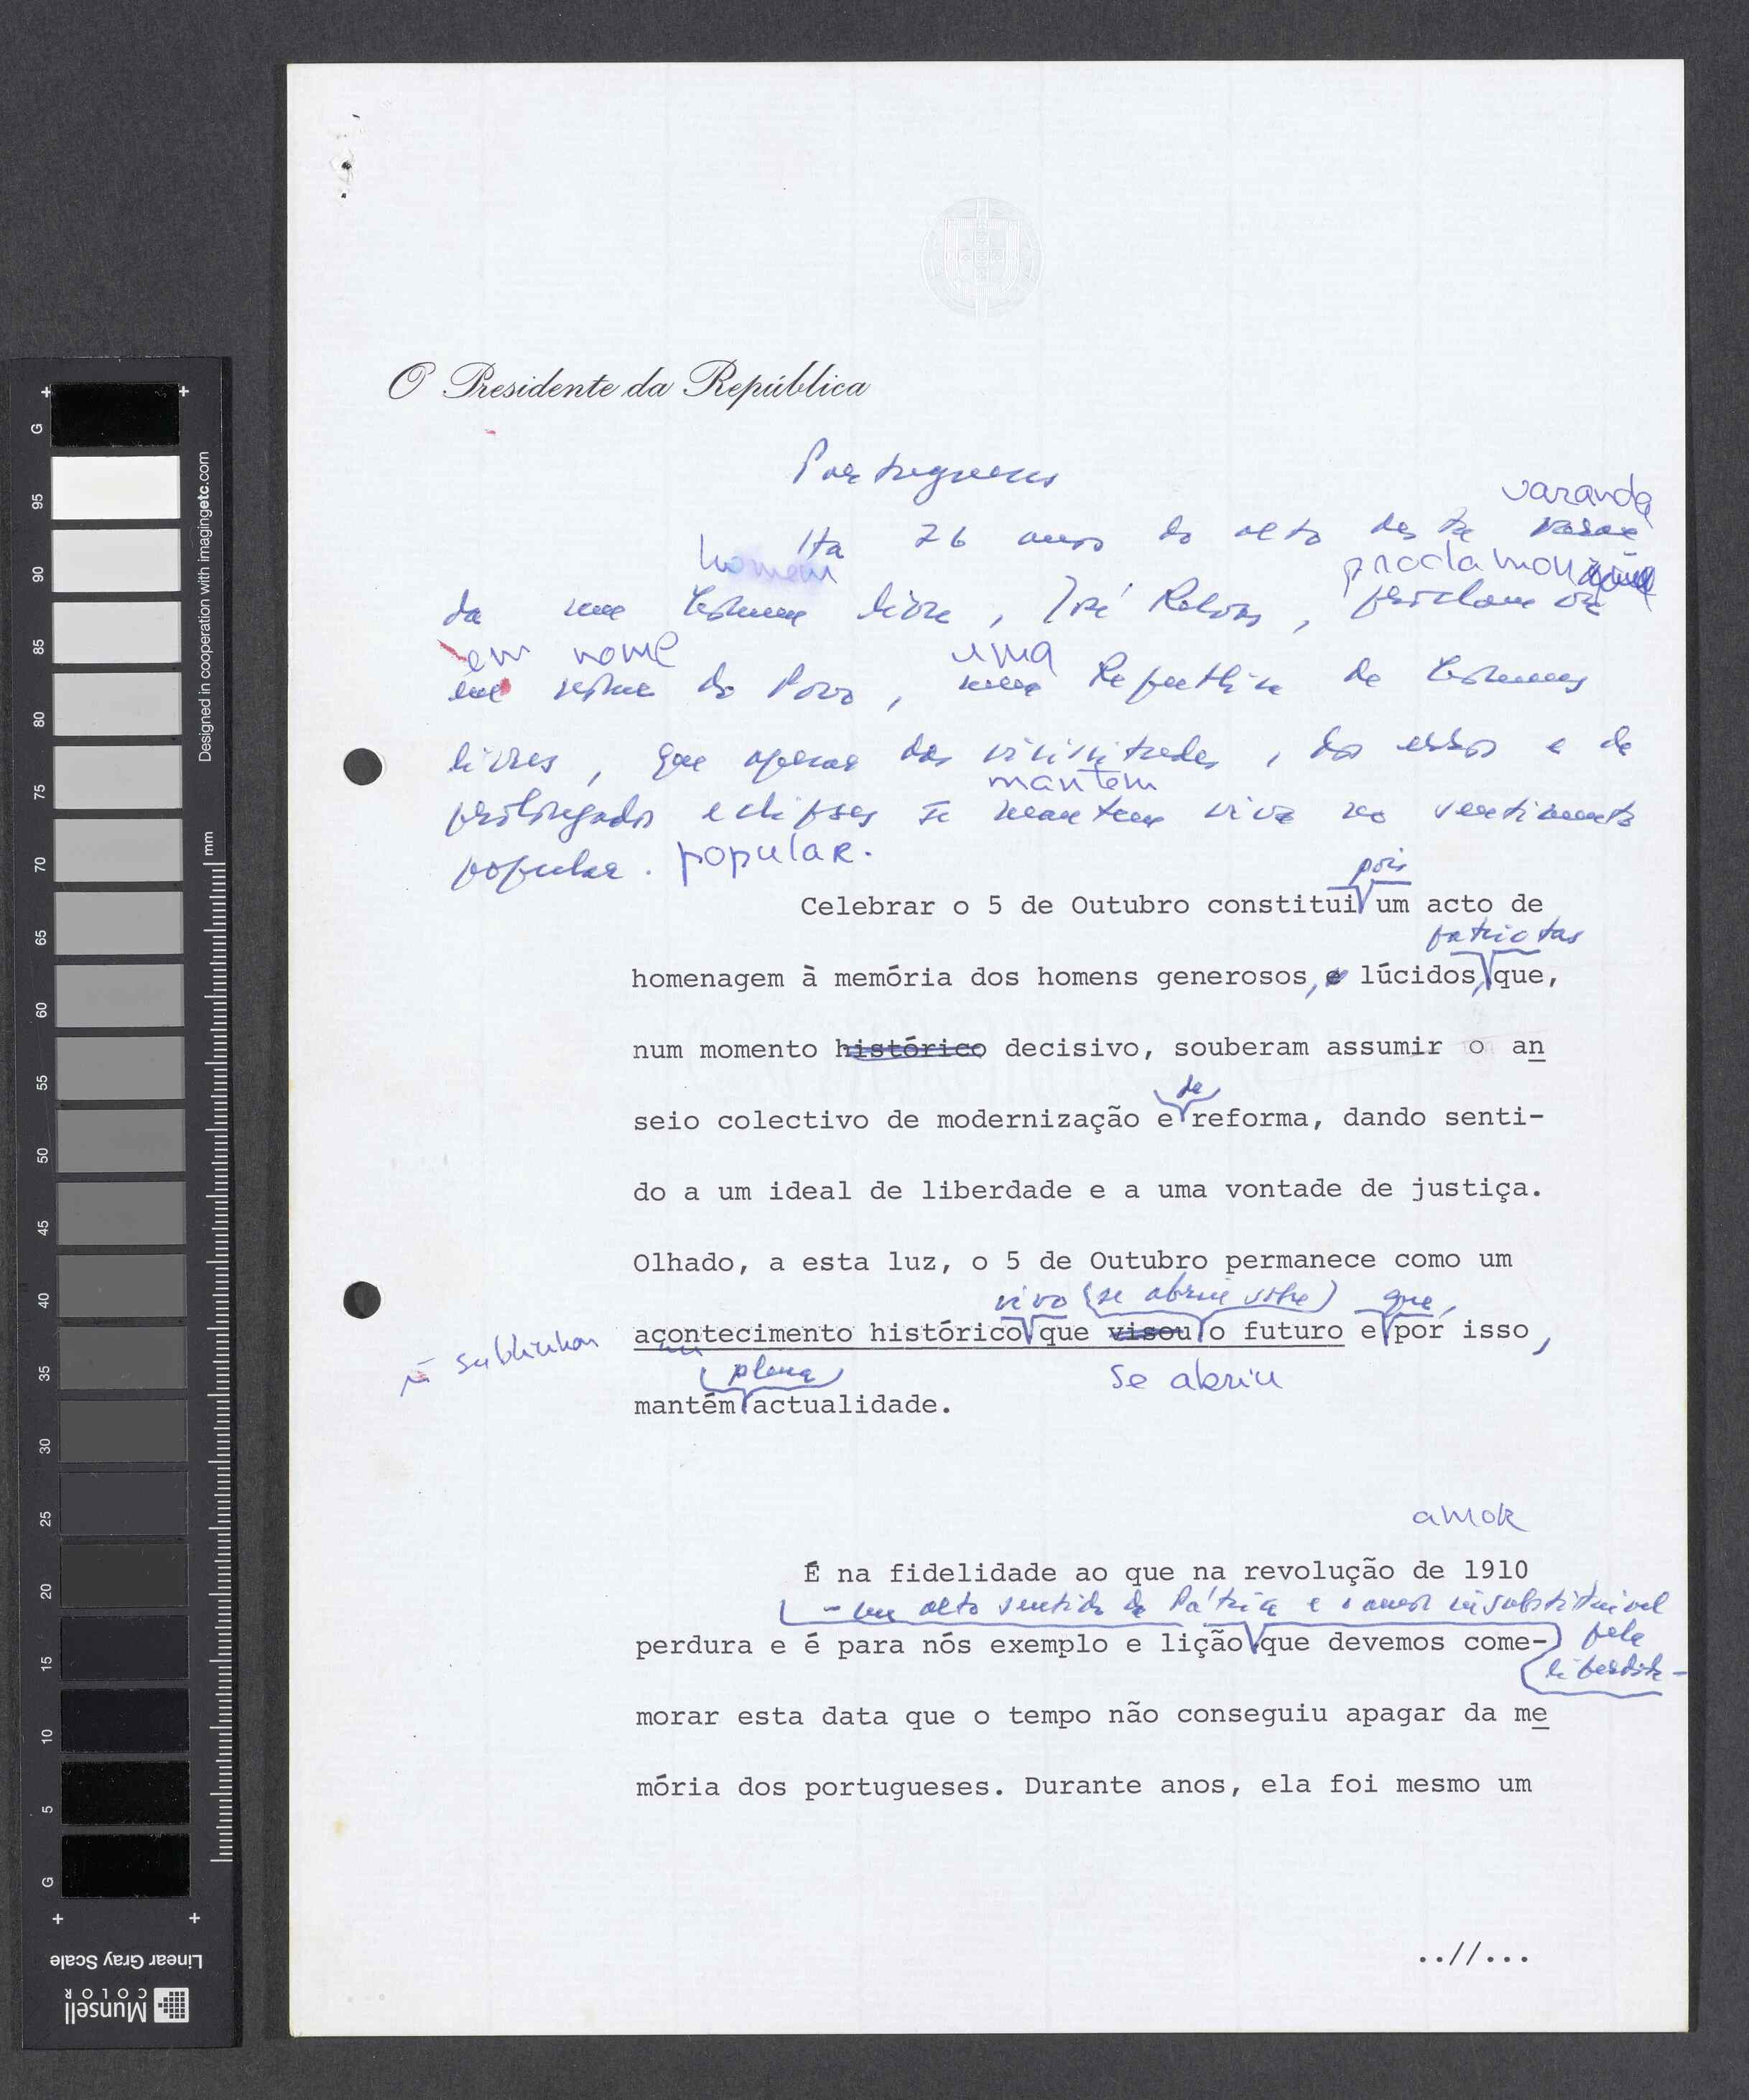 O Presidente da República
Portugueses
varanda
Há 76 anos do alto desta varan
homem
proclamou
da um homem livre, José Relvas, proclamou
em nome
uma
em nome do Povo, uma República de homens
livres, que apesar das vicissitudes, dos erros e de
mantem
prolongados eclipses se mantem viva no sentimento
popular. popular.
pois
Celebrar o 5 de Outubro constitui um acto de
patriotas
homenagem à memória dos homens generosos, e lúcidos, que,
num momento histórico decisivo, souberam assumir o an
de
seio colectivo de modernização e reforma, dando senti-
do a um ideal de liberdade e a uma vontade de justiça.
Olhado, a esta luz, o 5 de Outubro permanece como um
vivo (se abriu sobre) que,
acontecimento histórico que visou o futuro e por isso,
sublinhar
plena
se abriu
mantém actualidade.
amor
É na fidelidade ao que na revolução de 1910
- um alto sentido da Pátria e o amor insubstituível
perdura e é para nós exemplo e lição que devemos come-
pela
liberdade -
morar esta data que o tempo não conseguiu apagar da me
mória dos portugueses. Durante anos, ela foi mesmo um
..//...
Designed in cooperation with imagingetc.com
mm
G
95
90
85
80
75
70
65
60
55
50
45
40
35
30
25
20
15
10
5
G
Linear Gray Scale
Munsell
COLOR